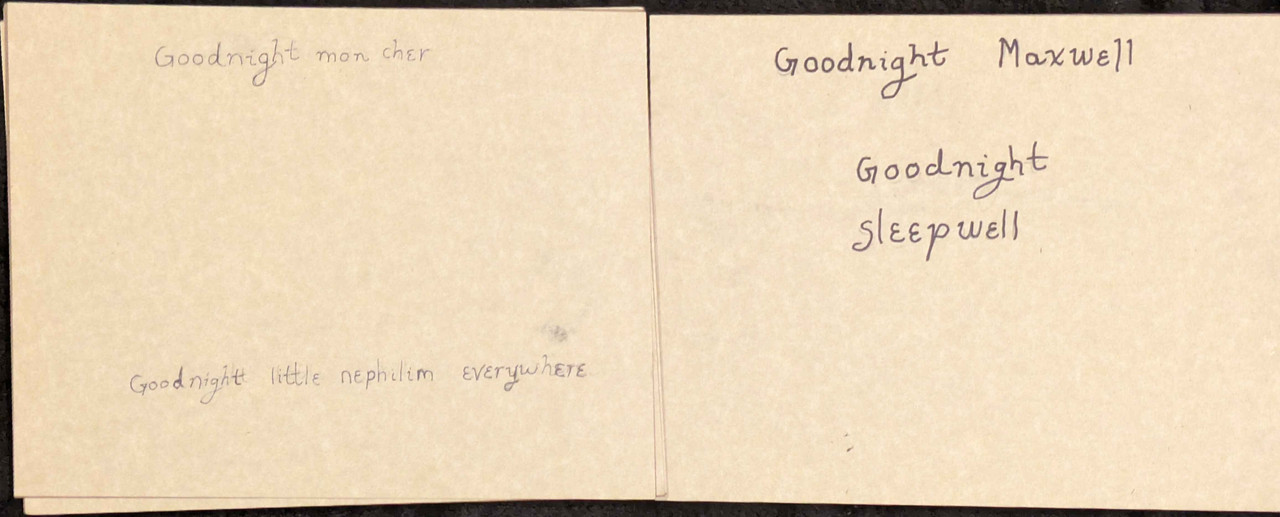 Goodnight mon cher
Goodnight little nephilim everywhere
Goodnight Maxwell
Goodnight
sleepwell